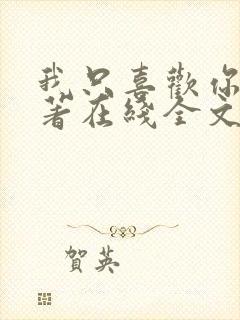 我只喜歡你
著在綫全文
賀英